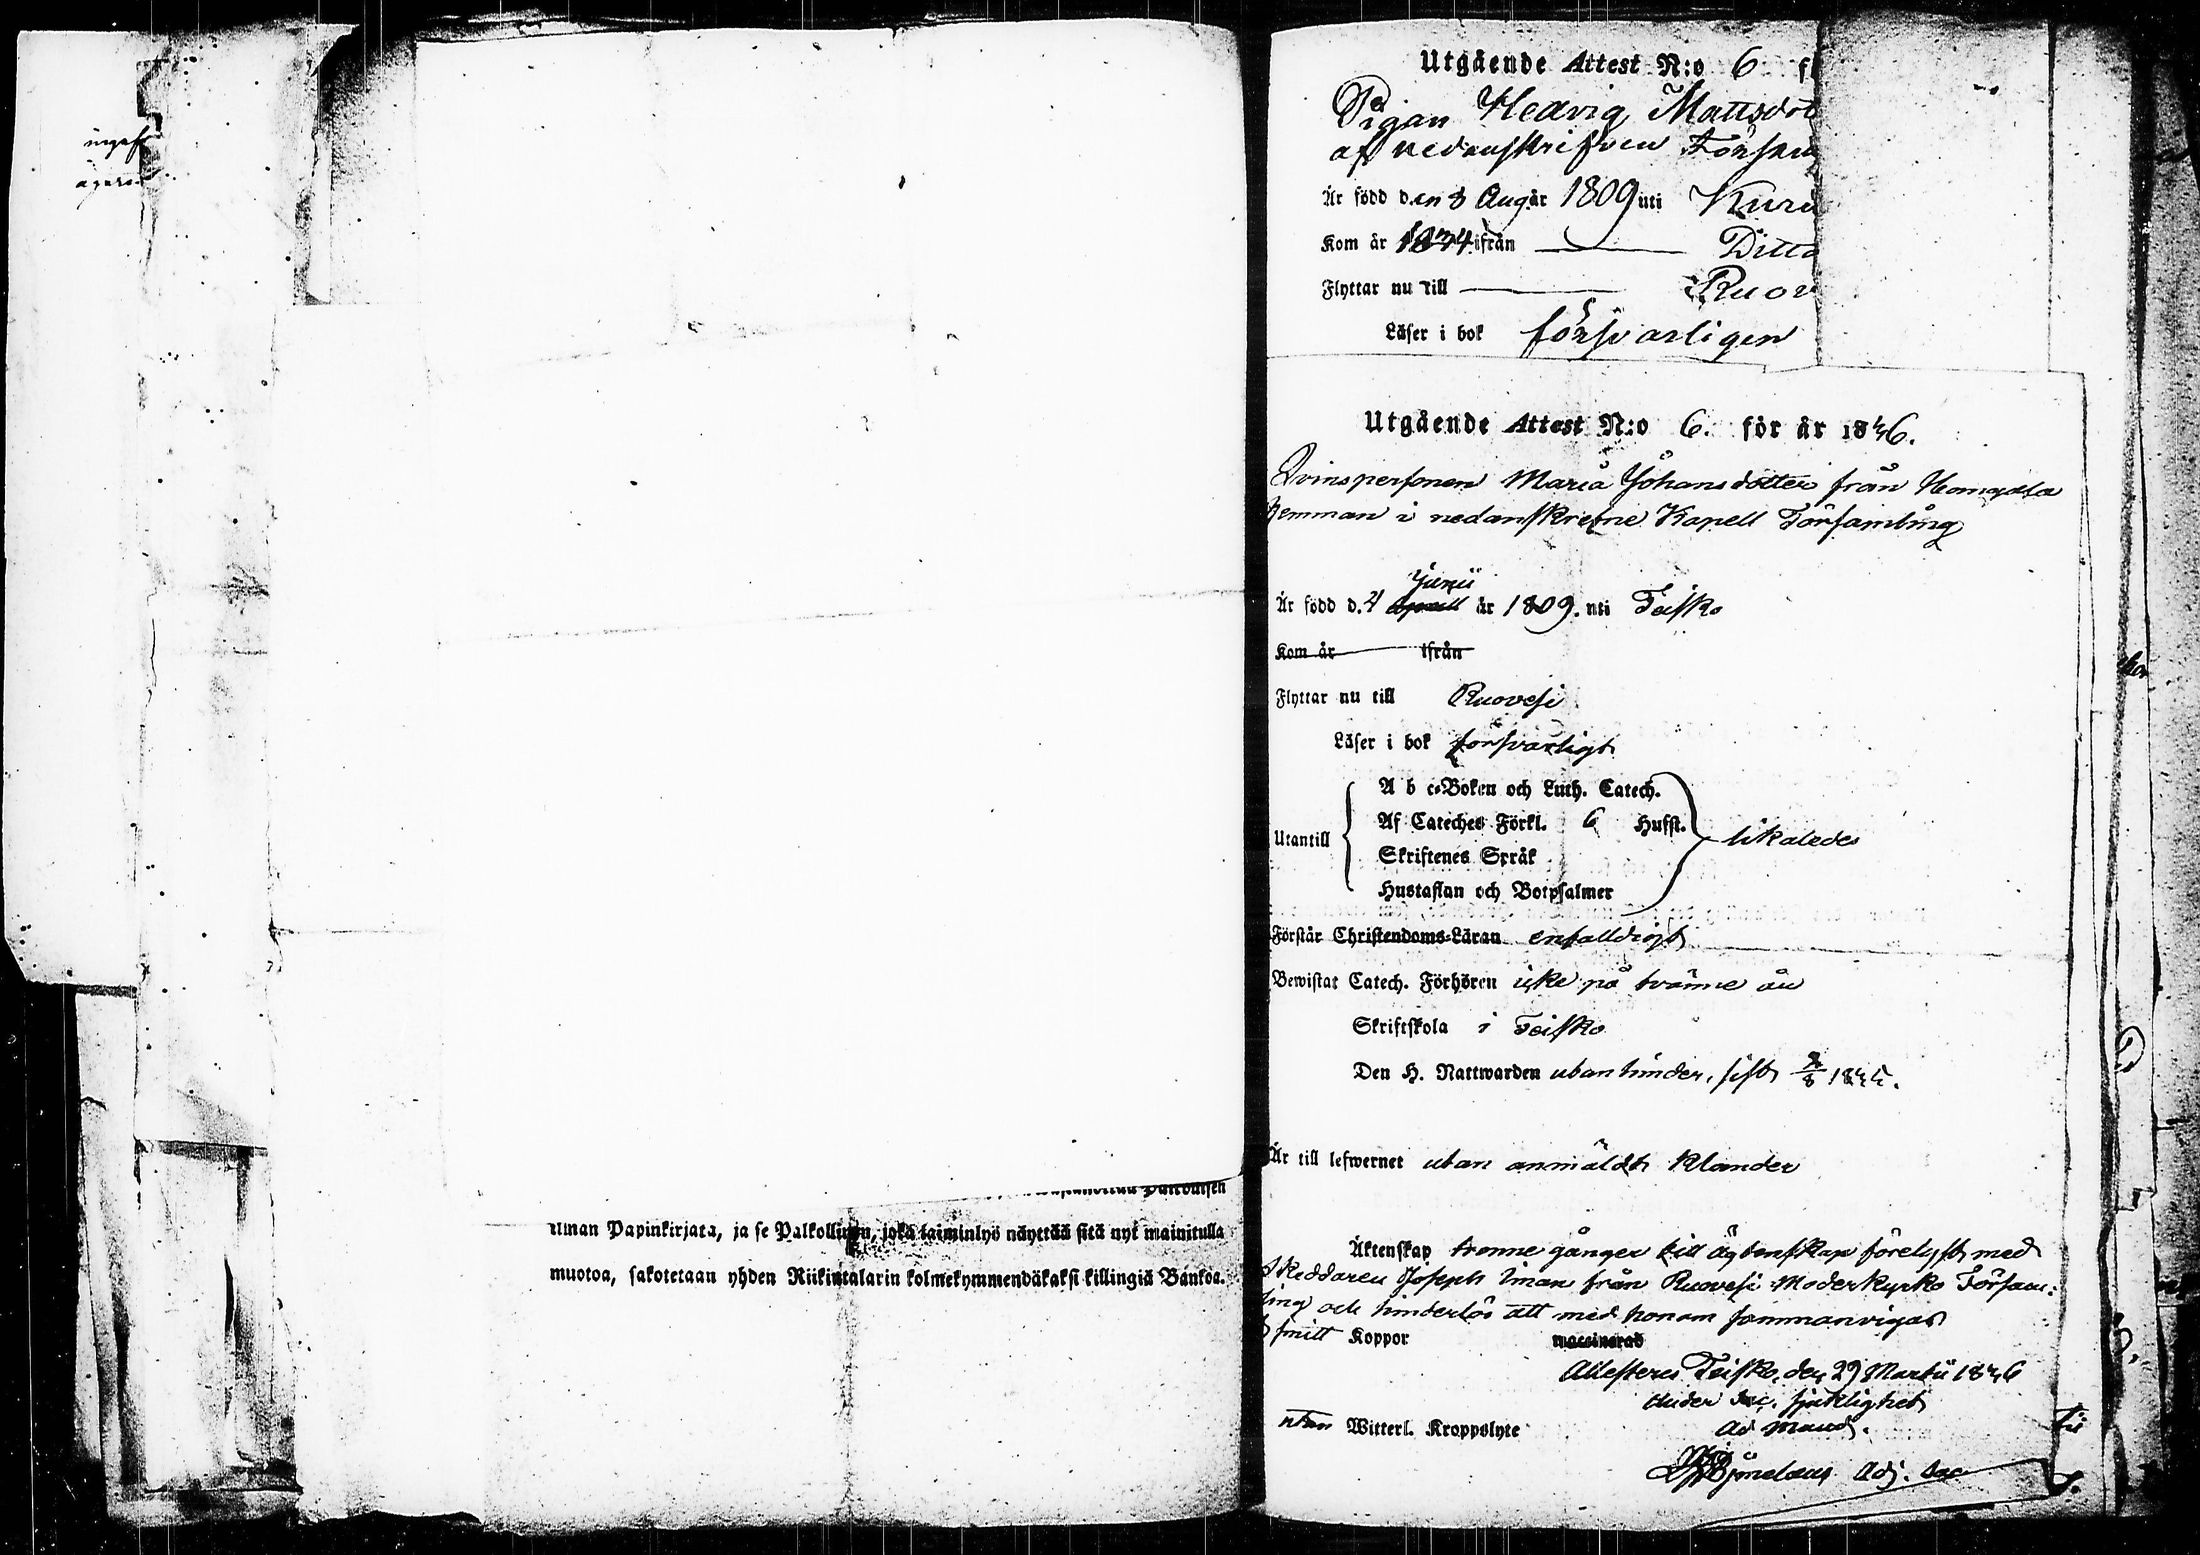 ilman Papinkirjata, ja se Palkollinen, joka laiminlyö näyttää sitä nyt mainitulla
muotoa, sakotetaan yhden Riikintalarin kolmekymmendäkaksi killingiä Bankoa.
Utgående Attest N:o 6 f
Pigan Hedvig Mattsdot
af nedanskrifven Försam
Är född den 8 Aug år 1809 uti Kuru
Kom år 1834 ifrån Ditto
Flyttar nu till Ruov
Läser i bok försvarligen
Utgående Attest N:o 6. för år 1846.
Qvinspersonen Maria Johansdotter från
hemman i nedanskrefne Kapell Församling
Junii
Är född d. 4 April år 1809. uti Teisko
Kom år ifrån
Flyttar nu till Ruovesi
Läser i bok försvarligt
A b c-Boken och Luth. Catech.
Af Cateches Förkl. 6 Hufst.
Utantill likaledes
Skriftenes Språk
Hustaflan och Botpsalmer
Förstår Christendoms-Läran enfalldigt
Bewistat Catech. Förhören icke på tvänne år
Skriftskola i Teisko
Den H. Nattwarden utan hinder, sist 1845.
Är till lefwernet utan anmäldt klander
Äktenskap trenne gånger till ägtenskap förelyst med
Skeddaren Joseph Iman från Ruovesi Moderkyrko Försam:
ling och hinderlös att med honom sammanvigas
Koppor vaccinerad
Attesteres Teisko, den 29 Martii 1846
Under Sac. sjuklighet
utan Witterl. Kroppslyte
Ad Mand.
Adj. Sac